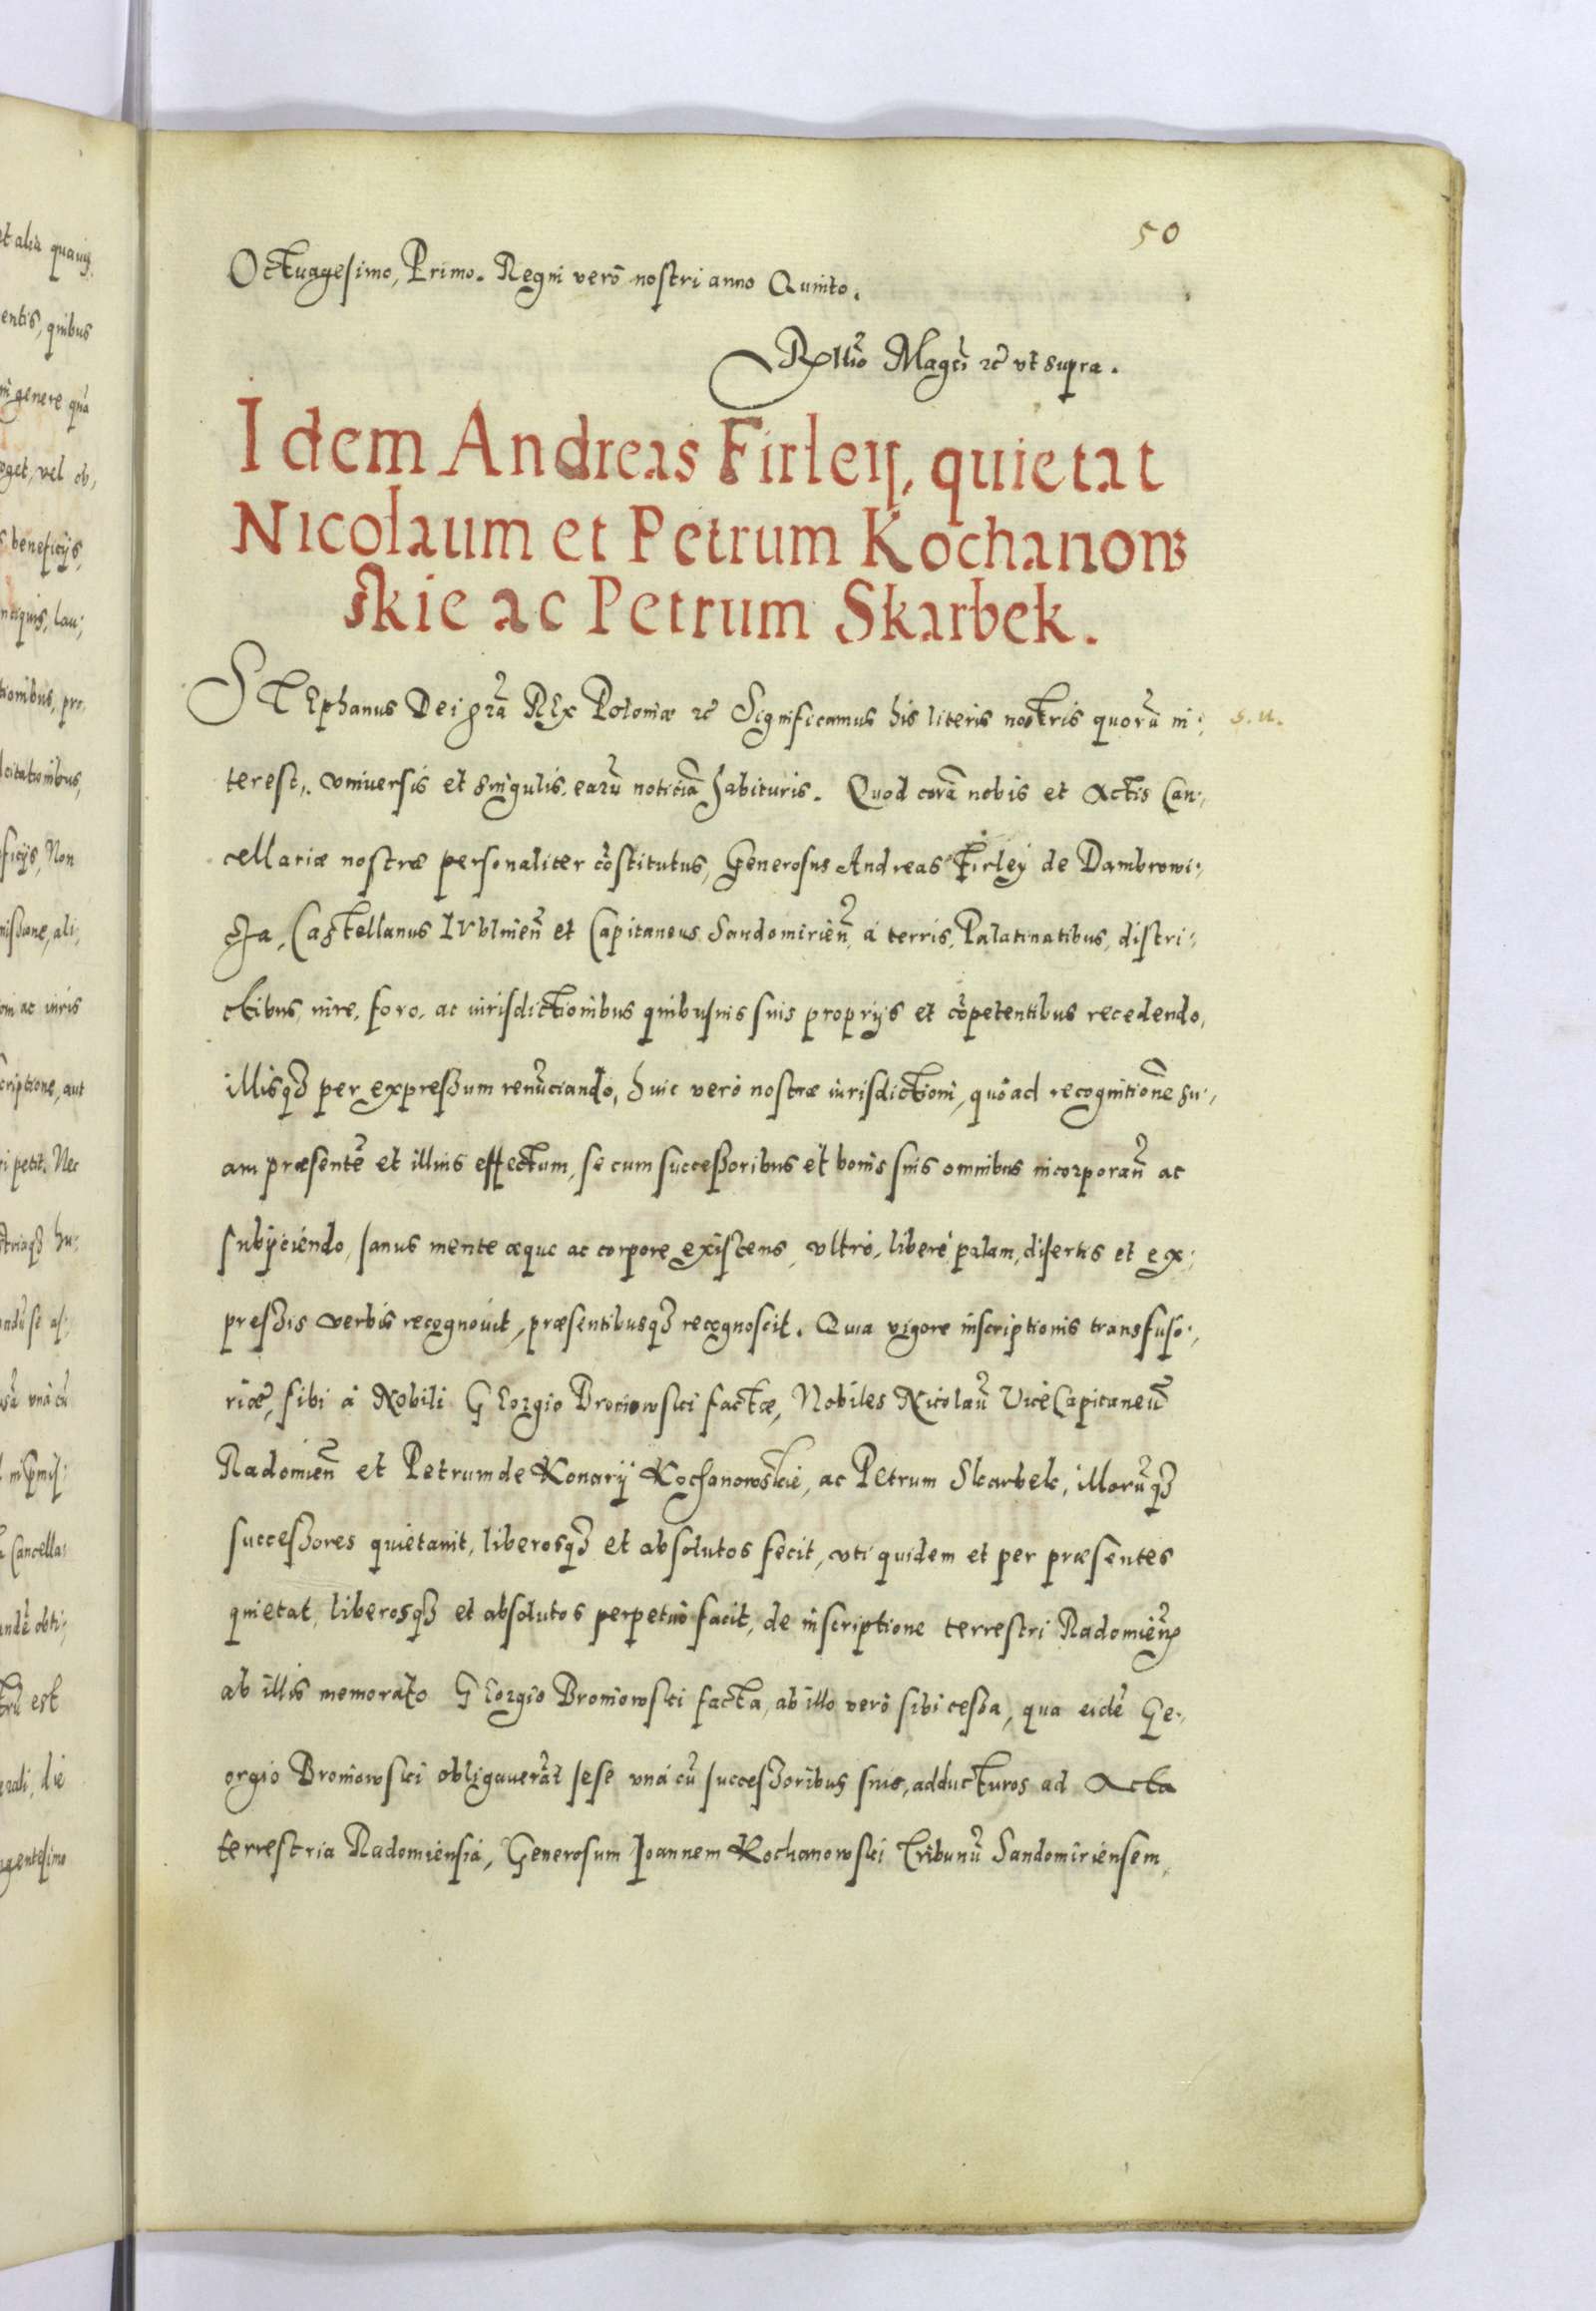 50
Octuagesimo, Primo. Regni verò nostri anno Quinto.
Rllio Magci rc̃ vt supra.
Idem Andreas Firleÿ, quietat
Nicolaum et Petrum Kochanow
skie ac Petrum Skarbek.
STEphanus Dei grã REx Poloniæ rc̃ Significamus his literis nostris quorũ in:
s. u.
terest, vniuersis et singulis, earũ noticiã habituris. Quod corã nobis et Actis Can:,
cellariæ nostræ personaliter cõstitutus, Generosus Andreas Firleÿ de Dambrowi:,
cza, Castellanus LVblinen̄ et Capitaneus Sandomirien̄, à terris, Palatinatibus, distri:,
ctibus, iure, foro, ac iurisdictionibus quibusuis suis proprijs et cõpetentibus recedendo,
illisqȝ per expressum renũciando, huic verò nostræ iurisdictioni, quò ad recognitionẽ su:,
am præsentẽ et illius effectum, se cum successoribus et bonis suis omnibus incorporan̄ ac
subÿciendo, sanus mente æque ac corpore existens, vltrò, liberè palam, disertis et ex:
pressis verbis recognouit, præsentibusqȝ recognoscit. Quia vigore inscriptionis transfuso:,
riæ, sibi à Nobili GEorgio Broniowski factæ, Nobiles Nicolaũ ViceCapitaneũ
Radomien̄ et Petrum de Konarÿ Kochanowskie, ac PEtrum Skarbek, illorũqȝ
successores quietauit, liberosqȝ et absolutos fecit, vti quidem et per præsentes
quietat, liberosqȝ et absolutos perpetuò facit, de inscriptione terrestri Radomien̄
ab illis memorato GEorgio Broniowski facta, ab illo verò sibi cessa, qua eidẽ Ge:,
orgio Broniowski obligauerãt sese vnà cũ successoribus suis, adducturos ad Acta
terrestria Radomiensia, Generosum Ioannem Kochanowski Tribunũ Sandomiriensem,